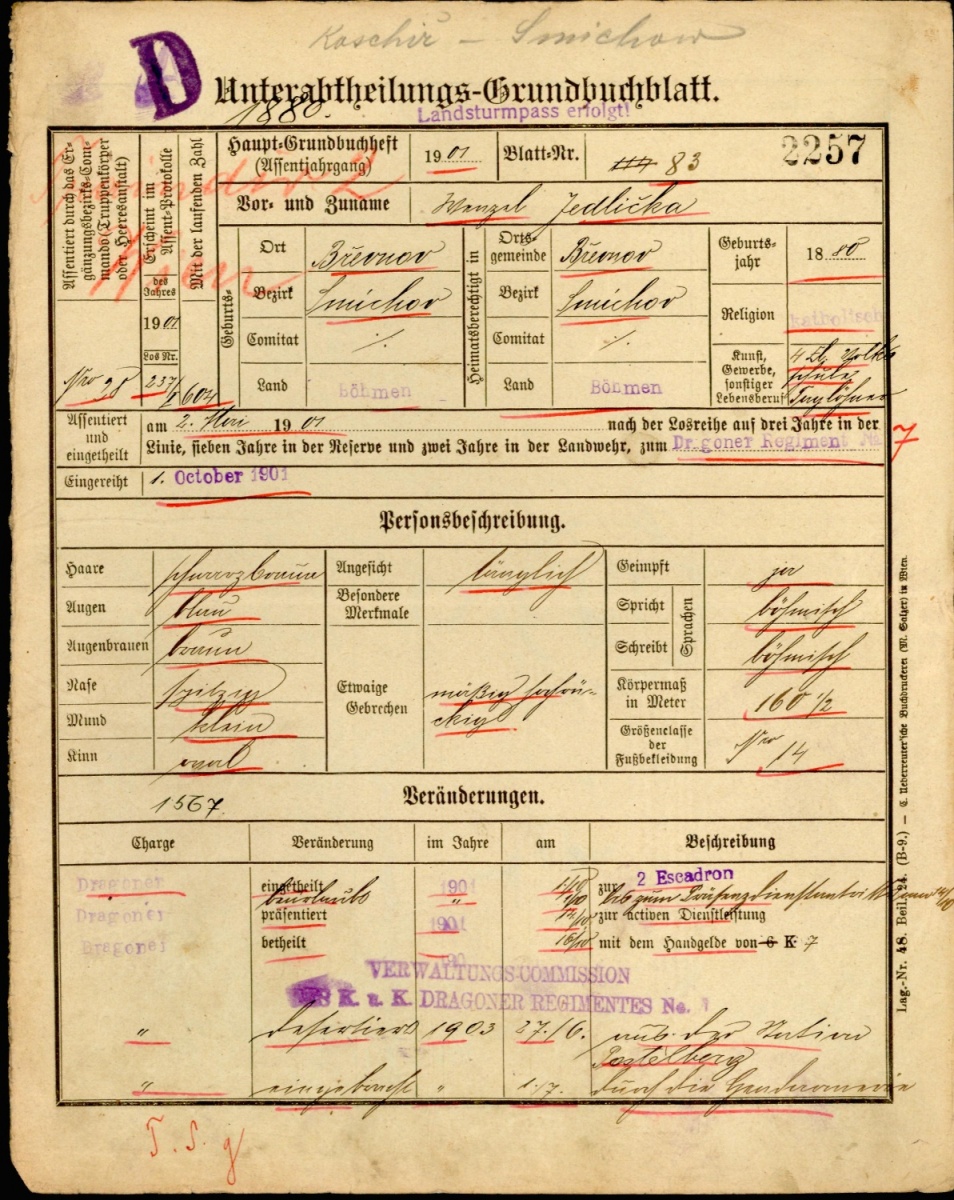 Koschiř - Smichow
D
Unterabtheilungs-Grundbuchblatt.
1880.
Landsturmpass erfolgt!
Assentiert durch das Er-
gänzungsbezirks-Com-
mando (Truppenkörper
oder Heeresanstalt)
Nro 28
Erscheint im
Assent-Protokolle
des
Jahres
1901
Los Nr.
237/
Mit der laufenden Zahl
604
Haupt-Grundbuchheft
(Assentjahrgang)
1901
Blatt-Nr.
83
2257
Vor- und Zuname
Wenzel Jedlička
Geburts-
Ort Břevnov
Bezirk Smichov
Comitat ·/.
Land Böhmen
Heimatsberechtigt in
Orts-
gemeinde Břevnov
Bezirk Smichov
Comitat ·/.
Land Böhmen
Geburts-
jahr 1880
Religion katholisch
Kunst,
Gewerbe,
sonstiger
Lebensberuf
4 Kl. Volks
schule
Taglöhner
Assentiert
und
eingetheilt
am 2. Mai 1901 nach der Losreihe auf drei Jahre in der
Linie, sieben Jahre in der Reserve und zwei Jahre in der Landwehr, zum Dragoner Regiment No 7
Eingereiht 1. October 1901
Personsbeschreibung.
Haare schwarzbraun
Augen blau
Augenbrauen braun
Nase spitzig
Mund klein
Kinn oval
Angesicht länglich
Besondere
Merkmale
Etwaige
Gebrechen
mäßig hohlrü-
ckig
Geimpft ja
Spricht böhmisch
Schreibt böhmisch
Sprachen
Körpermaß
in Meter 160 1/2
Größenclasse
der
Fußbekleidung Nro 14
1567.
Veränderungen.
Charge Veränderung im Jahre am Beschreibung
Dragoner eingetheilt 1901 1/10 zur 2 Escadron
beurlaubt " 1/10 bis zum Präsenzdienstantritt
Dragoner präsentiert 1901 zur activen Dienstleistung
Dragoner betheilt mit dem Handgelde von 6 K 7
VERWALTUNGS-COMMISSION
DES K. u. K. DRAGONER REGIMENTES No. 7
" desertiert 1903 27./6. aus der Station
Postelberg
" eingebracht " 1./7. durch die Gendarmerie
T. S. g
Lag.-Nr. 48. Beil. 24. (B-9.) — C. Ueberreuter'sche Buchdruckerei (M. Salzer) in Wien.